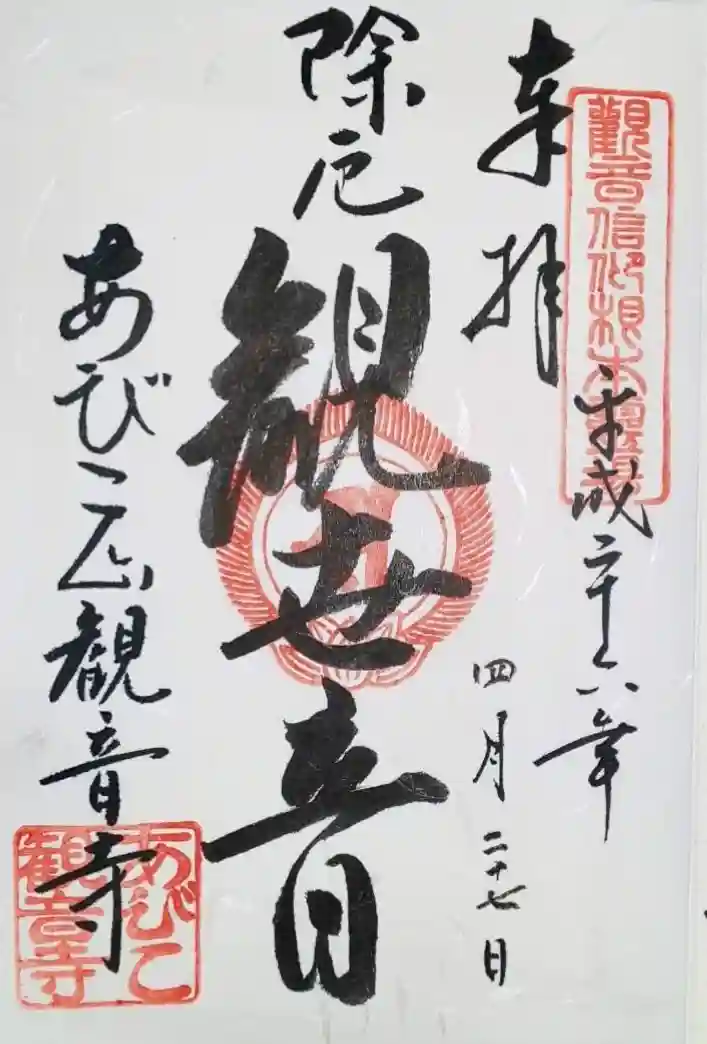 奉拝
觀音信仰根本
平成二十六年
四月二十七日
除厄
観世音
あびこ山観音寺
あびこ
観音寺